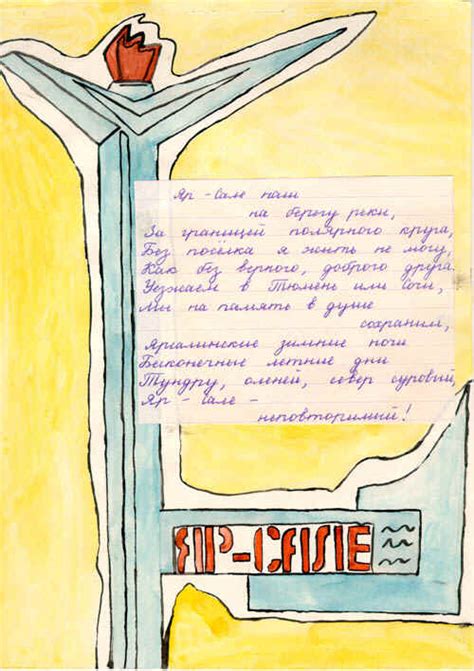 Яр - Сале наш
на берегу реки,
За границей полярного круга,
Без посёлка я жить не могу,
Как без верного, доброго друга.
Уезжаем в Тюмень или Сочи,
Мы на память в душе
сохраним,
Ярсалинские зимние ночи
Бесконечные летние дни
Тундру, оленей, север суровый,
Яр - Сале -
неповторимый!
ЯР-САЛЕ